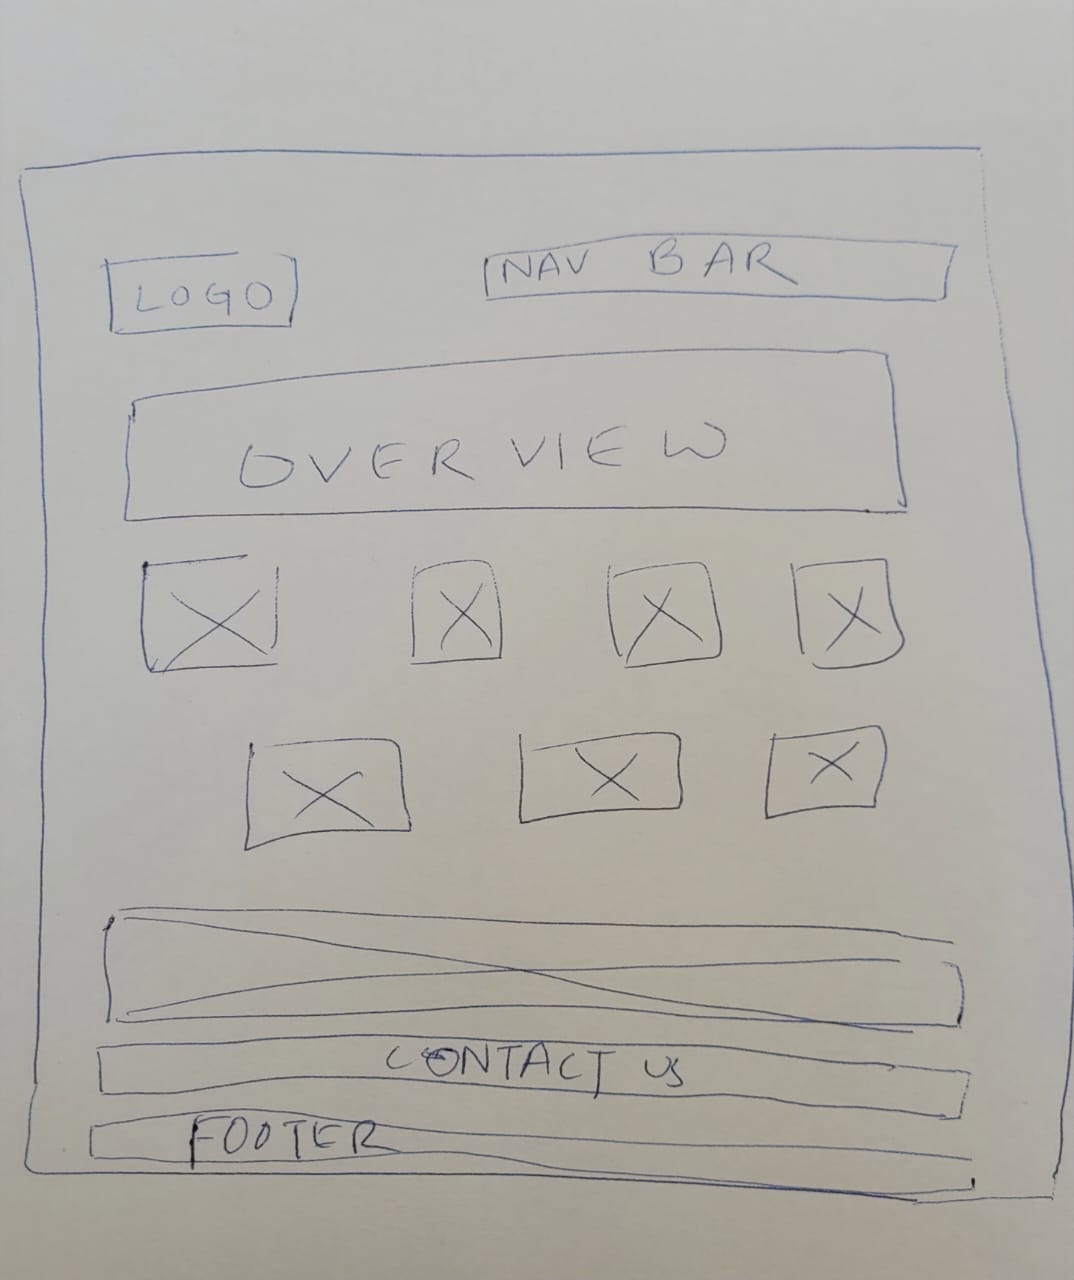 LOGO
NAV BAR
OVERVIEW
CONTACT US
FOOTER